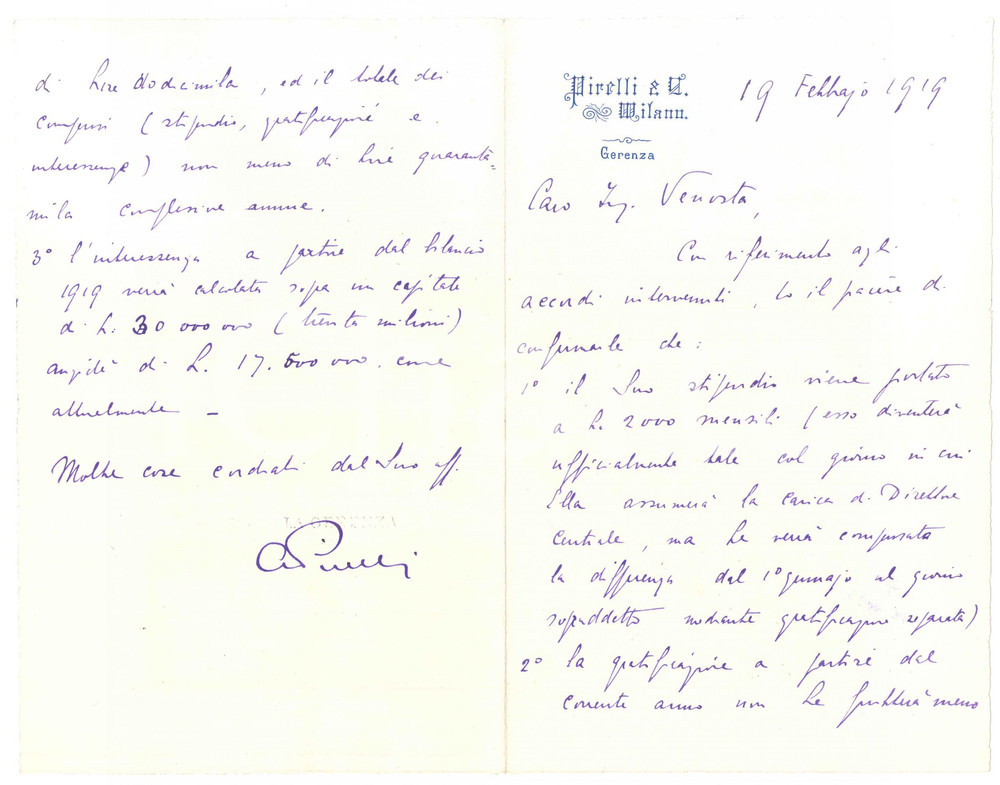 Pirelli & C.
Milano.
Gerenza
19 Febbrajo 1919
Caro Ing. Venosta,
Con riferimento agli
accordi intervenuti, ho il piacere di
confermarle che:
1° il Suo stipendio viene portato
a L. 2000 mensili (esso diventerà
ufficialmente tale col giorno in cui
Ella assumerà la carica di Direttore
Centrale, ma Le verrà compensata
la differenza dal 1° gennajo al giorno
sopraddetto mediante gratificazione separata)
2° la gratificazione a partire dal
corrente anno non Le frutterà meno
di Lire dodicimila, ed il totale dei
compensi (stipendio, gratificazione e
interessenza) non meno di lire quaranta=
mila complessive annue.
3° l'interessenza a partire dal bilancio
1919 verrà calcolata sopra un capitale
di L. 30 000 000 (trenta milioni)
anziché di L. 17.500 000. come
attualmente –
Molte cose cordiali dal Suo aff.
LA GERENZA
Pirelli